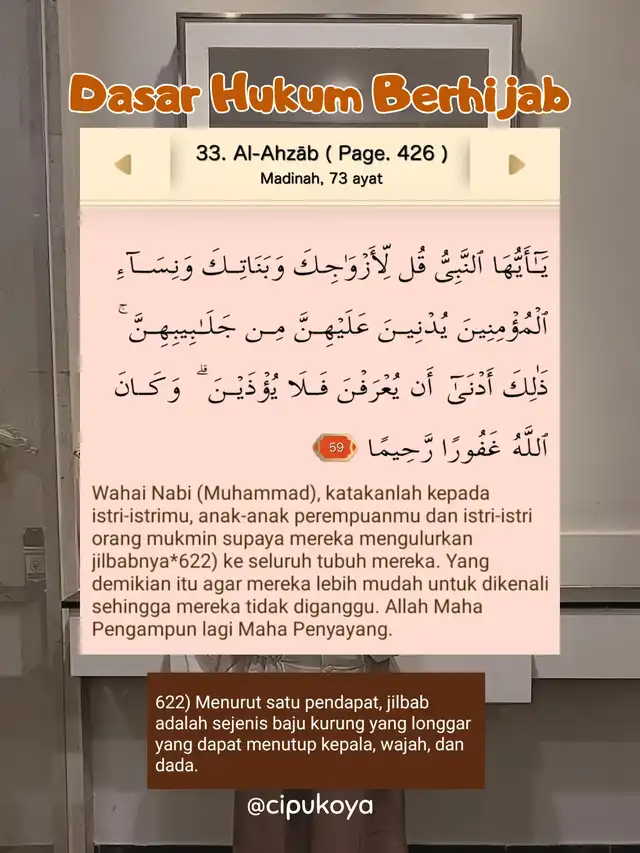 Dasar Hukum Berhijab
33. Al-Ahzāb ( Page. 426 )
Madinah, 73 ayat
يَـٰٓأَيُّهَا ٱلنَّبِىُّ قُل لِّأَزْوَٰجِكَ وَبَنَاتِـكَ وَنِسَـآءِ
ٱلْمُؤْمِنِينَ يُدْنِيـنَ عَلَيْهِـنَّ مِـن جَلَـٰبِيبِهِـنَّ ۚ
ذَٰلِكَ أَدْنَىٰٓ أَن يُعْرَفْنَ فَـلَا يُؤْذَيْـنَ ۗ وَكَـانَ
ٱللَّهُ غَفُورًا رَّحِيمًا 59
Wahai Nabi (Muhammad), katakanlah kepada
istri-istrimu, anak-anak perempuanmu dan istri-istri
orang mukmin supaya mereka mengulurkan
jilbabnya*622) ke seluruh tubuh mereka. Yang
demikian itu agar mereka lebih mudah untuk dikenali
sehingga mereka tidak diganggu. Allah Maha
Pengampun lagi Maha Penyayang.
622) Menurut satu pendapat, jilbab
adalah sejenis baju kurung yang longgar
yang dapat menutup kepala, wajah, dan
dada.
@cipukoya